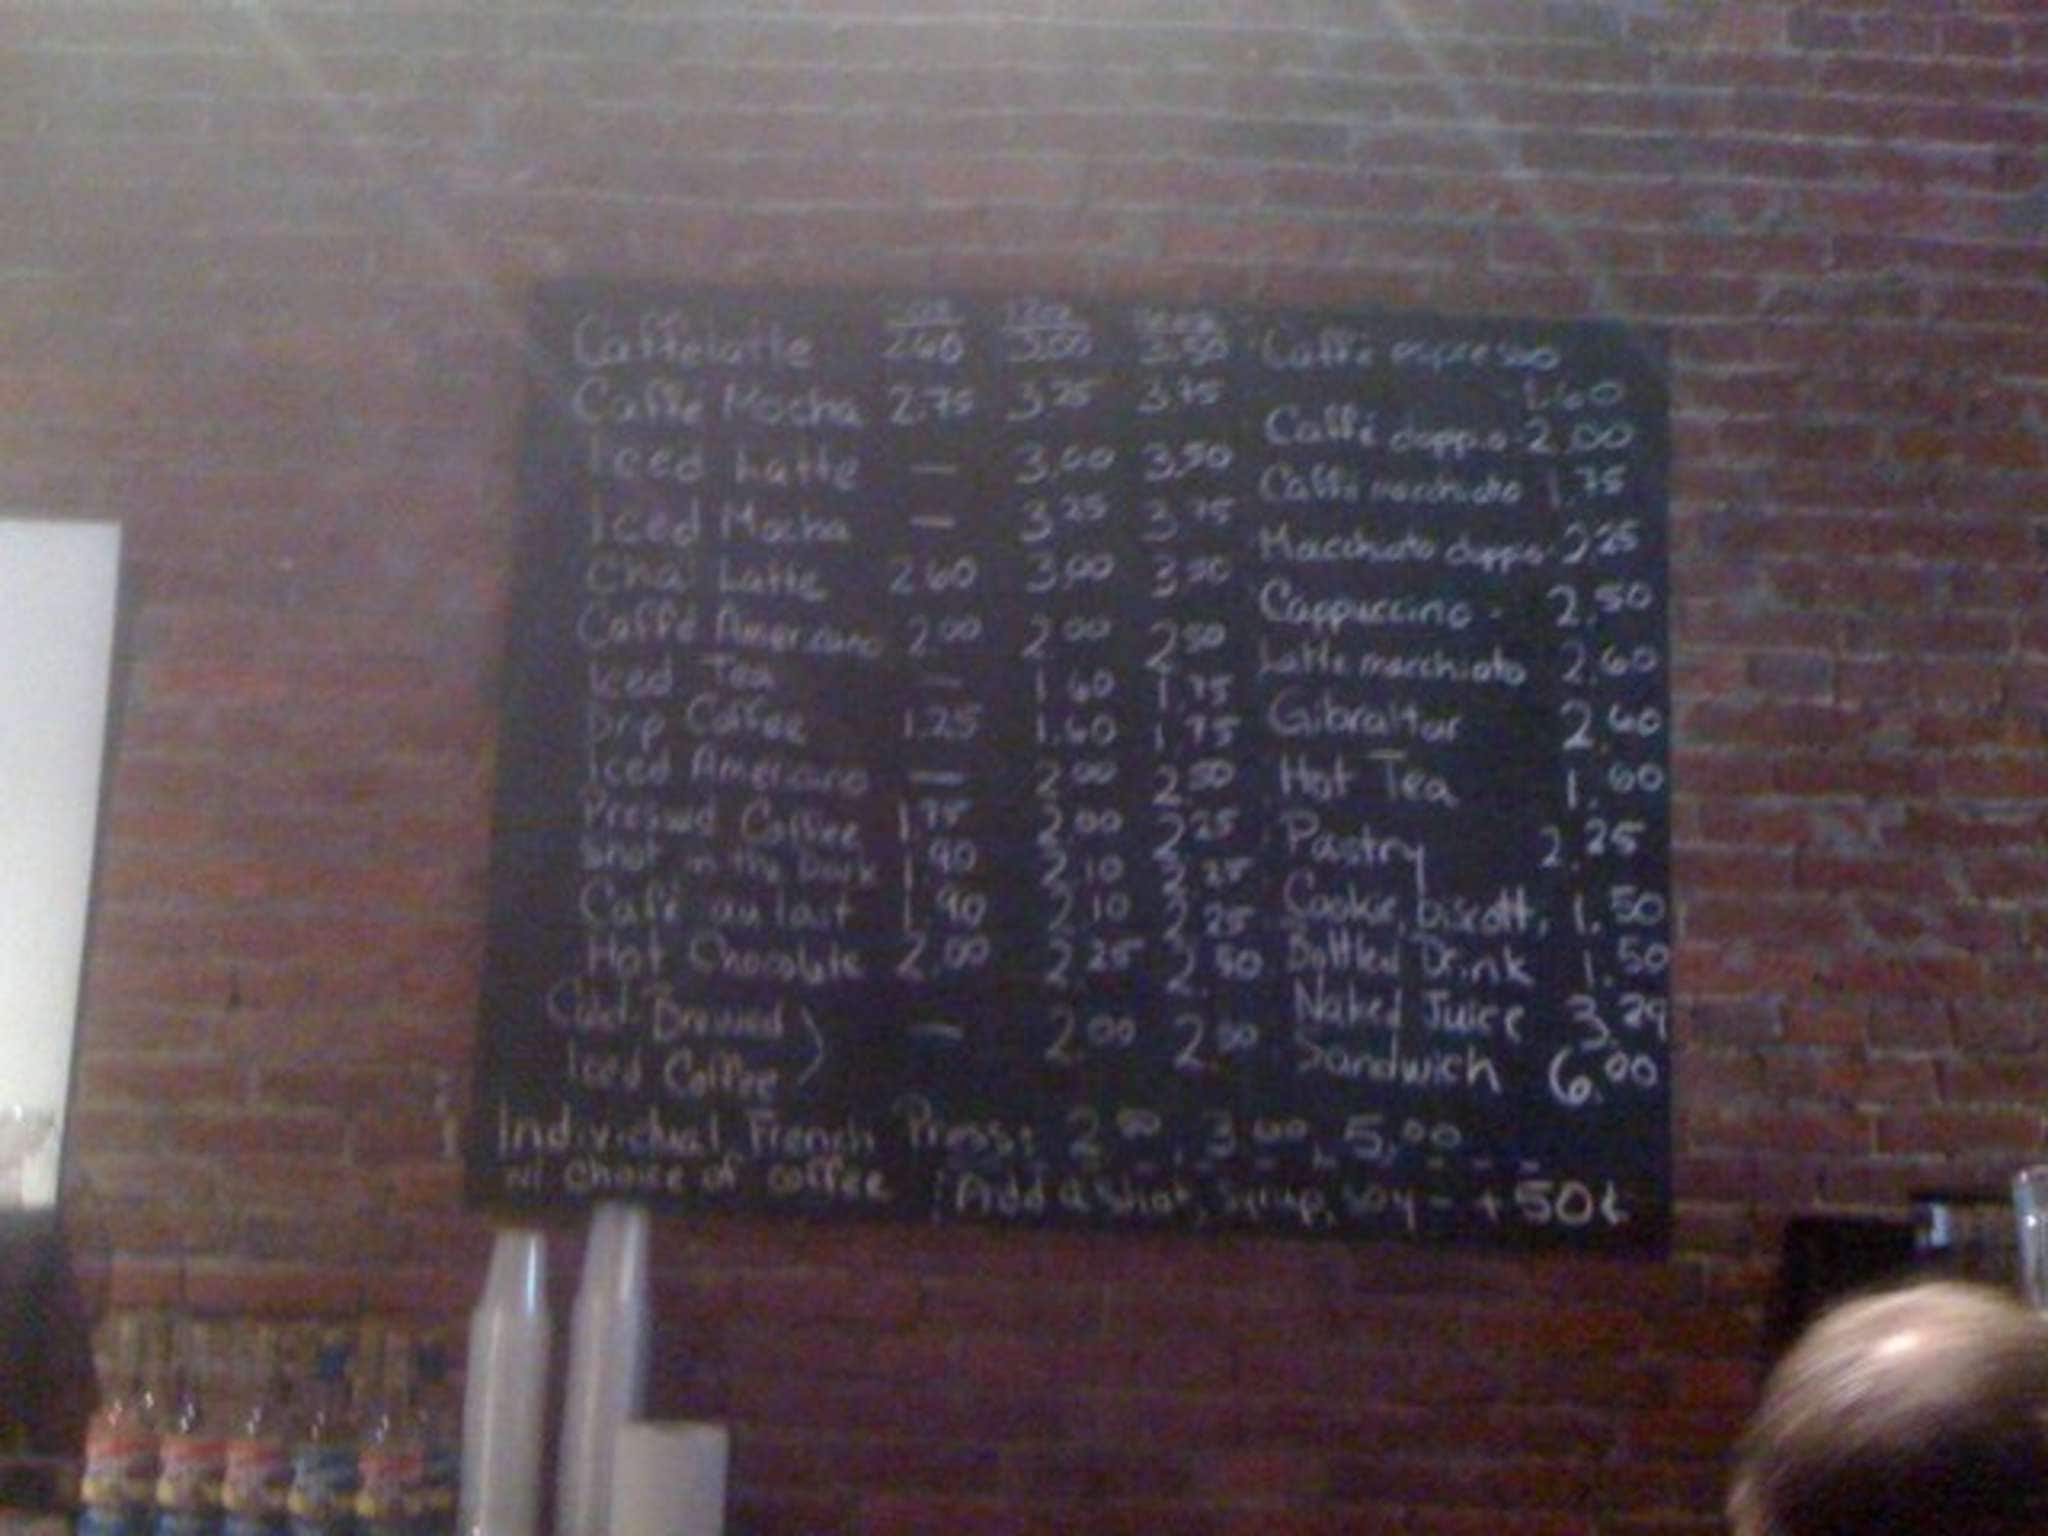 12oz
Caffe latte 2.60 3.00 3.50
Caffe Mocha 2.75 3.25 3.75
Iced Latte — 3.00 3.50
Iced Mocha — 3.25 3.75
Chai Latte 2.60 3.00 3.50
Caffe Americano 2.00 2.00 2.50
Iced Tea — 1.60 1.75
Drip Coffee 1.25 1.60 1.75
Iced Americano — 2.00 2.50
Pressed Coffee 1.75 2.00 2.25
Shot in the Dark 1.90 2.10 2.25
Café au lait 1.90 2.10 2.25
Hot Chocolate 2.00 2.25 2.50
Cold-Brewed
Iced Coffee — 2.00 2.50
Caffe espresso
1.60
Caffé doppio - 2.00
Caffe macchiato 1.75
Macchiato doppio - 2.25
Cappuccino - 2.50
Latte macchiato 2.60
Gibraltar 2.60
Hot Tea 1.60
Pastry 2.25
Cookie, biscotti, 1.50
Bottled Drink 1.50
Naked Juice 3.29
Sandwich 6.00
Individual French Press: 2.50, 3.00, 5.00
w/ choice of coffee
Add a shot, syrup, soy - +50¢